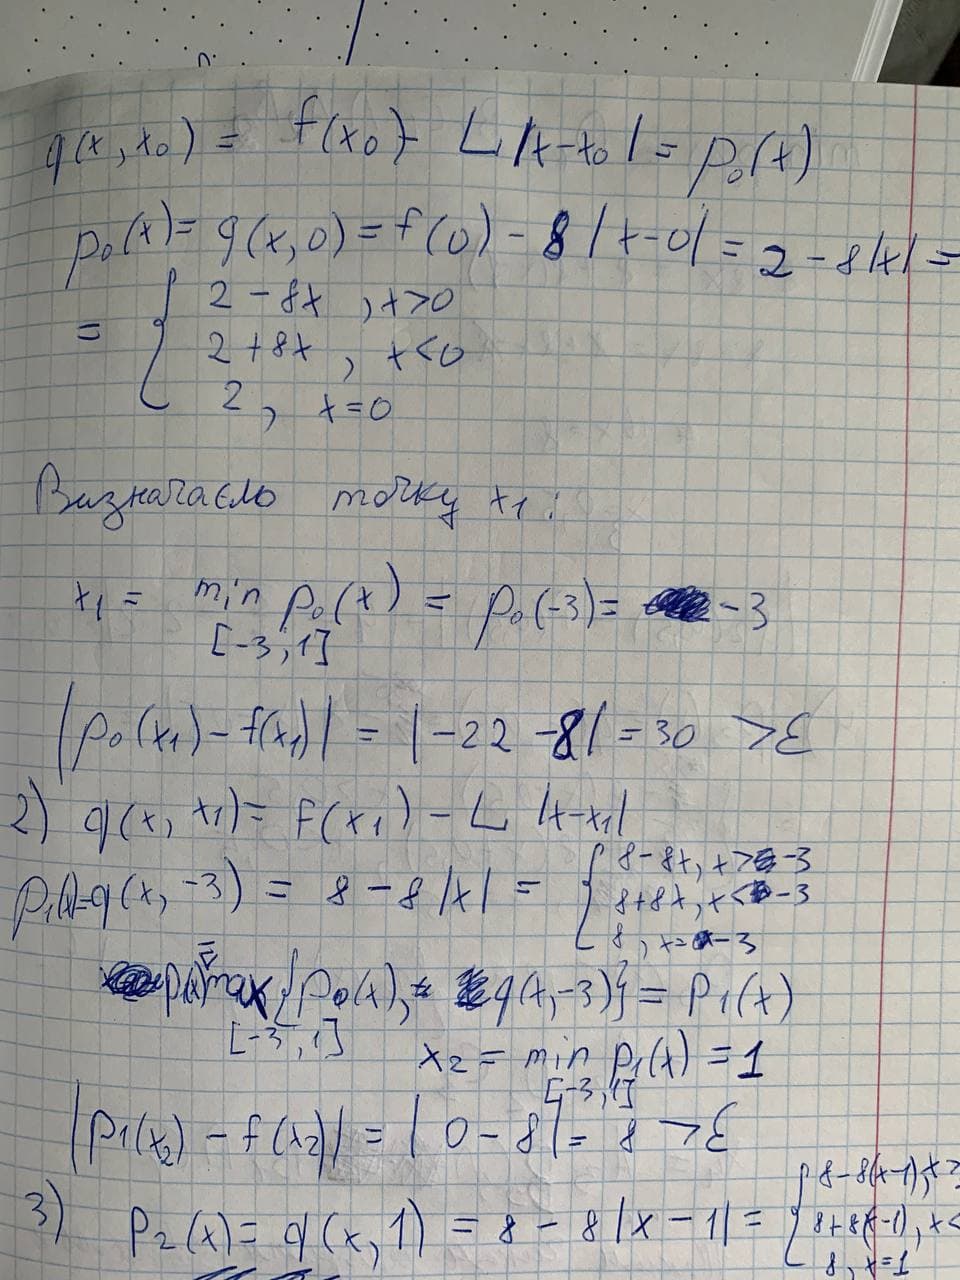 q(x, x₀) = f(x₀) - L |x-x₀| = p₀(x)
p₀(x) = q(x, 0) = f(0) - 8 |x-0| = 2 - 8|x| =
= { 2 - 8x , x>0
2 + 8x , x<0
2 , x=0
Визначаємо точку x₁ :
x₁ = min p₀(x) = p₀(-3) = -3
[-3; 1]
|p₀(x₁) - f(x₁)| = |-22 - 8| = 30 > ε
2) q(x, x₁) = f(x₁) - L |x-x₁|
p₁(x) = q(x, -3) = 8 - 8|x| = { 8 - 8x, x > -3
8 + 8x, x < -3
8, x = -3
p(x) = max {p₀(x), q(x, -3)} = p₁(x)
[-3, 1]
x₂ = min p₁(x) = 1
[-3, 1]
|p₁(x₂) - f(x₂)| = |0 - 8| = 8 > ε
3) p₂(x) = q(x, 1) = 8 - 8|x - 1| = { 8 - 8(x-1), x >
8 + 8(x-1), x <
8, x=1